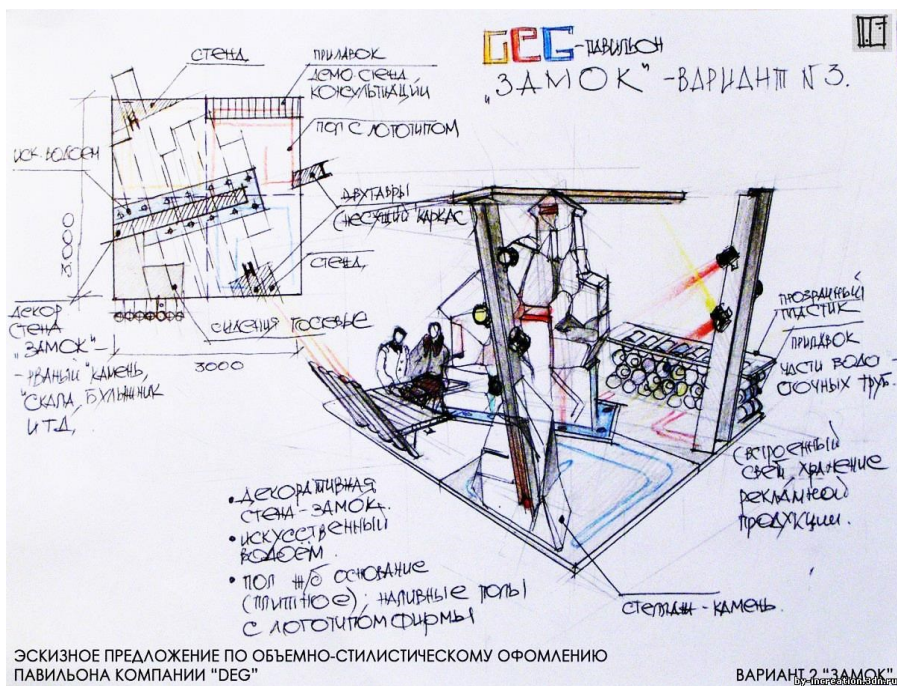 DEG-ПАВИЛЬОН
"ЗАМОК" - ВАРИАНТ N 3.
СТЕНД
ПРИЛАВОК
ДЕМО-СТЕНД
КОНСУЛЬТАЦИЙ
ПОЛ С ЛОГОТИПОМ
ИСК. ВОДОЕМ
ДВУТАВРЫ
(НЕСУЩИЙ КАРКАС
СТЕНД,
3000
ДЕКОР
СТЕНА
"ЗАМОК"-
- РВАНЫЙ "КАМЕНЬ,
"СКАЛА, БУЛЫЖНИК
И ТД,
СИДЕНИЯ ГОСЕВЫЕ
3000
ПРОЗРАЧНЫЙ
ПЛАСТИК
ПРИЛАВОК
ЧАСТИ ВОДО-
СТОЧНЫХ ТРУБ.
(ВСТРОЕННЫЙ
СВЕТ ХРАНЕНИЕ
РЕКЛАМНОЙ
ПРОДУКЦИИ.
• ДЕКОРАТИВНАЯ
СТЕНА-ЗАМОК.
• ИСКУССТВЕННЫЙ
ВОДОЕМ.
• ПОЛ Ж/Б ОСНОВАНИЕ
(ПЛИТНОЕ); НАЛИВНЫЕ ПОЛЫ
С ЛОГОТИПОМ ФИРМЫ
СТЕЛЛАЖ-КАМЕНЬ.
ЭСКИЗНОЕ ПРЕДЛОЖЕНИЕ ПО ОБЪЕМНО-СТИЛИСТИЧЕСКОМУ ОФОМЛЕНИЮ
ПАВИЛЬОНА КОМПАНИИ "DEG"
ВАРИАНТ 2 "ЗАМОК"
by-increation.3dn.ru